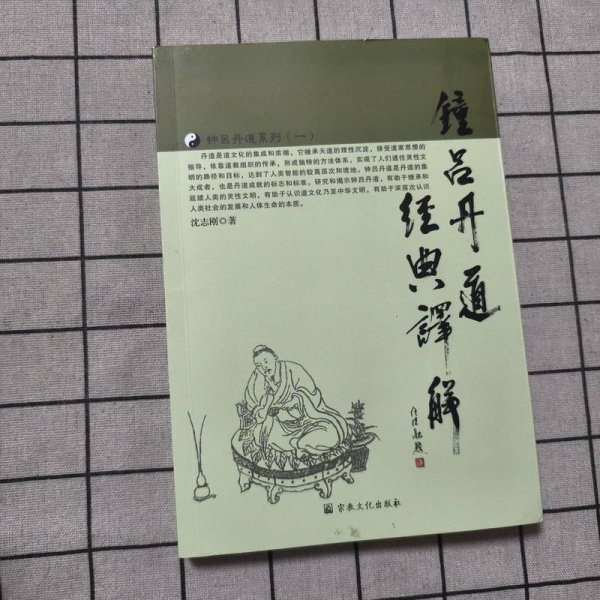 鍾吕丹道
經典譯解
钟吕丹道系列（一）
丹道是道文化的集成和浓缩，它继承天道的理性沉淀，接受道家思想的
指导，依靠道教组织的传承，形成独特的方法体系，实现了人们通往灵性文
明的路径和目标，达到了人类智能的较高层次和境地。钟吕丹道是丹道的集
大成者，也是丹道成就的标志和标准。研究和揭示钟吕丹道，有助于继承和
延续人类的灵性文明，有助于认识道文化乃至中华文明，有助于深层次认识
人类社会的发展和人体生命的本质。
沈志刚◎著
任法融题
宗教文化出版社